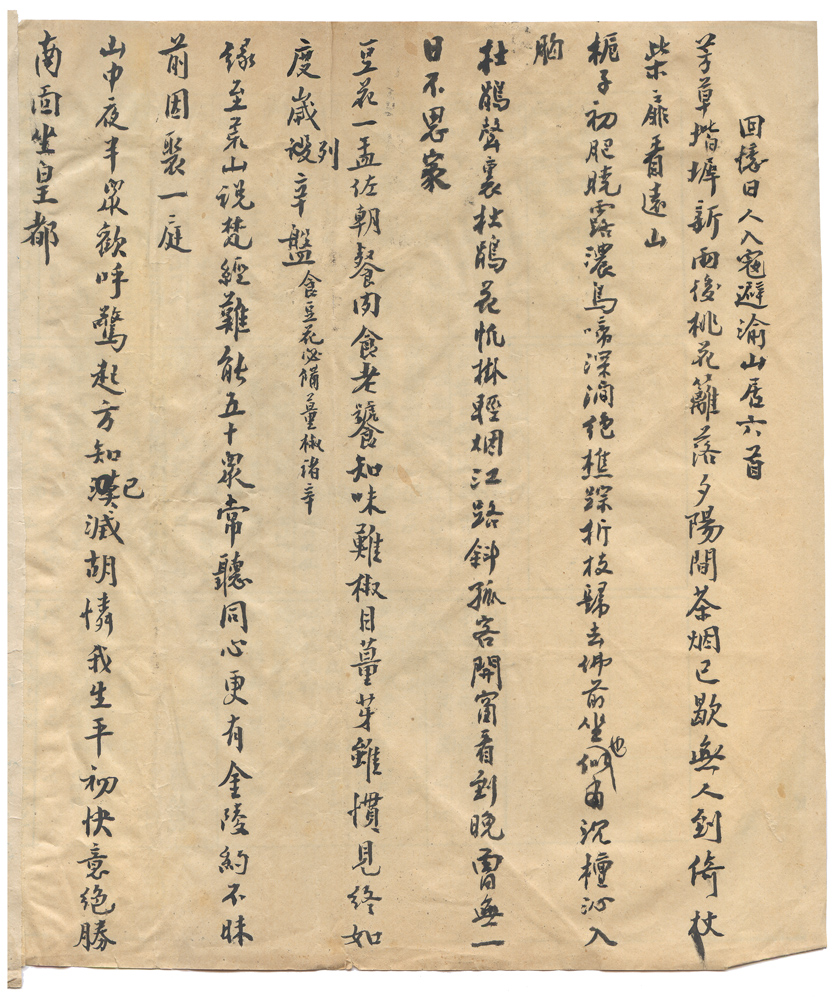 回憶日人入寇避渝山居六首
芳草堦墀新雨後桃花籬落夕陽間茶烟已歇無人到倚杖
柴扉看遠山
梔子初肥曉露濃鳥啼深澗絕樵踪折枝歸去佛前坐也似沉檀沁入
胸
杜鵑聲裏杜鵑花帆掛輕烟江路斜孤客開窗看到晚曾無一
日不思家
豆花一盂佐朝餐肉食老饕知味難椒目薑芽雖慣見終如
度歲設列辛盤食豆花必備薑椒諸辛
緣至荒山說梵經難能五十衆常聽同心更有金陵約不昧
前因聚一庭
山中夜半衆歡呼驚起方知漢已滅胡憐我生平初快意絕勝
南面坐皇都